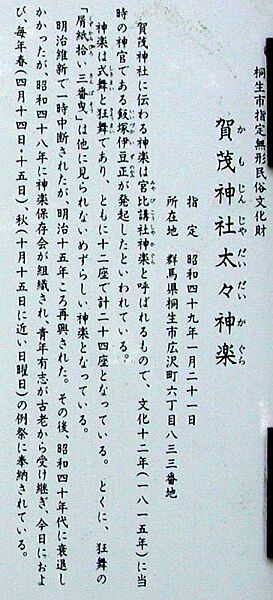 桐生市指定無形民俗文化財
賀茂神社太々神楽
かもじんじゃだいだいかぐら
指定 昭和四十九年一月二十一日
所在地 群馬県桐生市広沢町六丁目八三三番地
賀茂神社に伝わる神楽は宮比講社神楽と呼ばれるもので、文化十二年(一八一五年)に当
時の神官である飯塚伊豆正が発起したといわれている。
神楽は式舞と狂舞であり、ともに十二座で計二十四座となっている。とくに、狂舞の
「屑紙拾い三番叟」は他に見られないめずらしい神楽となっている。
明治維新で一時中断されたが、明治十五年ころ再興された。その後、昭和四十年代に衰退し
かかったが、昭和四十八年に神楽保存会が組織され、青年有志が古老から受け継ぎ、今日におよ
び、毎年春(四月十四日・十五日)、秋(十月十五日に近い日曜日)の例祭に奉納されている。